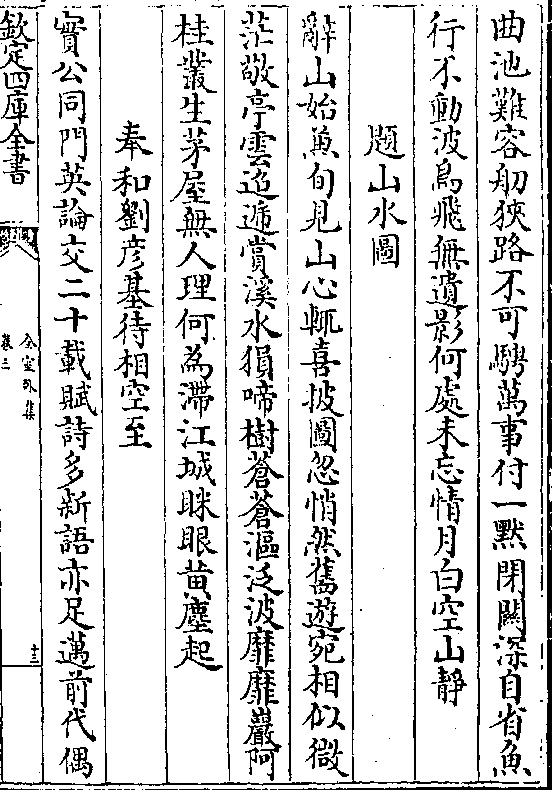 曲池難容舠狹路不可騁萬事付一黙閉闗深自省魚
行不動波鳥飛無遺影何處未忘情月白空山靜
題山水圖
辭山始兼旬見山心輒喜披圖忽悄然舊遊宛相似微
茫敬亭雲迢遞賞溪水猿啼樹蒼蒼漚泛波靡靡巖阿
桂叢生茅屋無人理何為滯江城眯眼黄塵起
奉和劉彦基待相空至
實公同門英論交二十載賦詩多新語亦足邁前代偶
欽定四庫全書
全室外集
卷三
十三